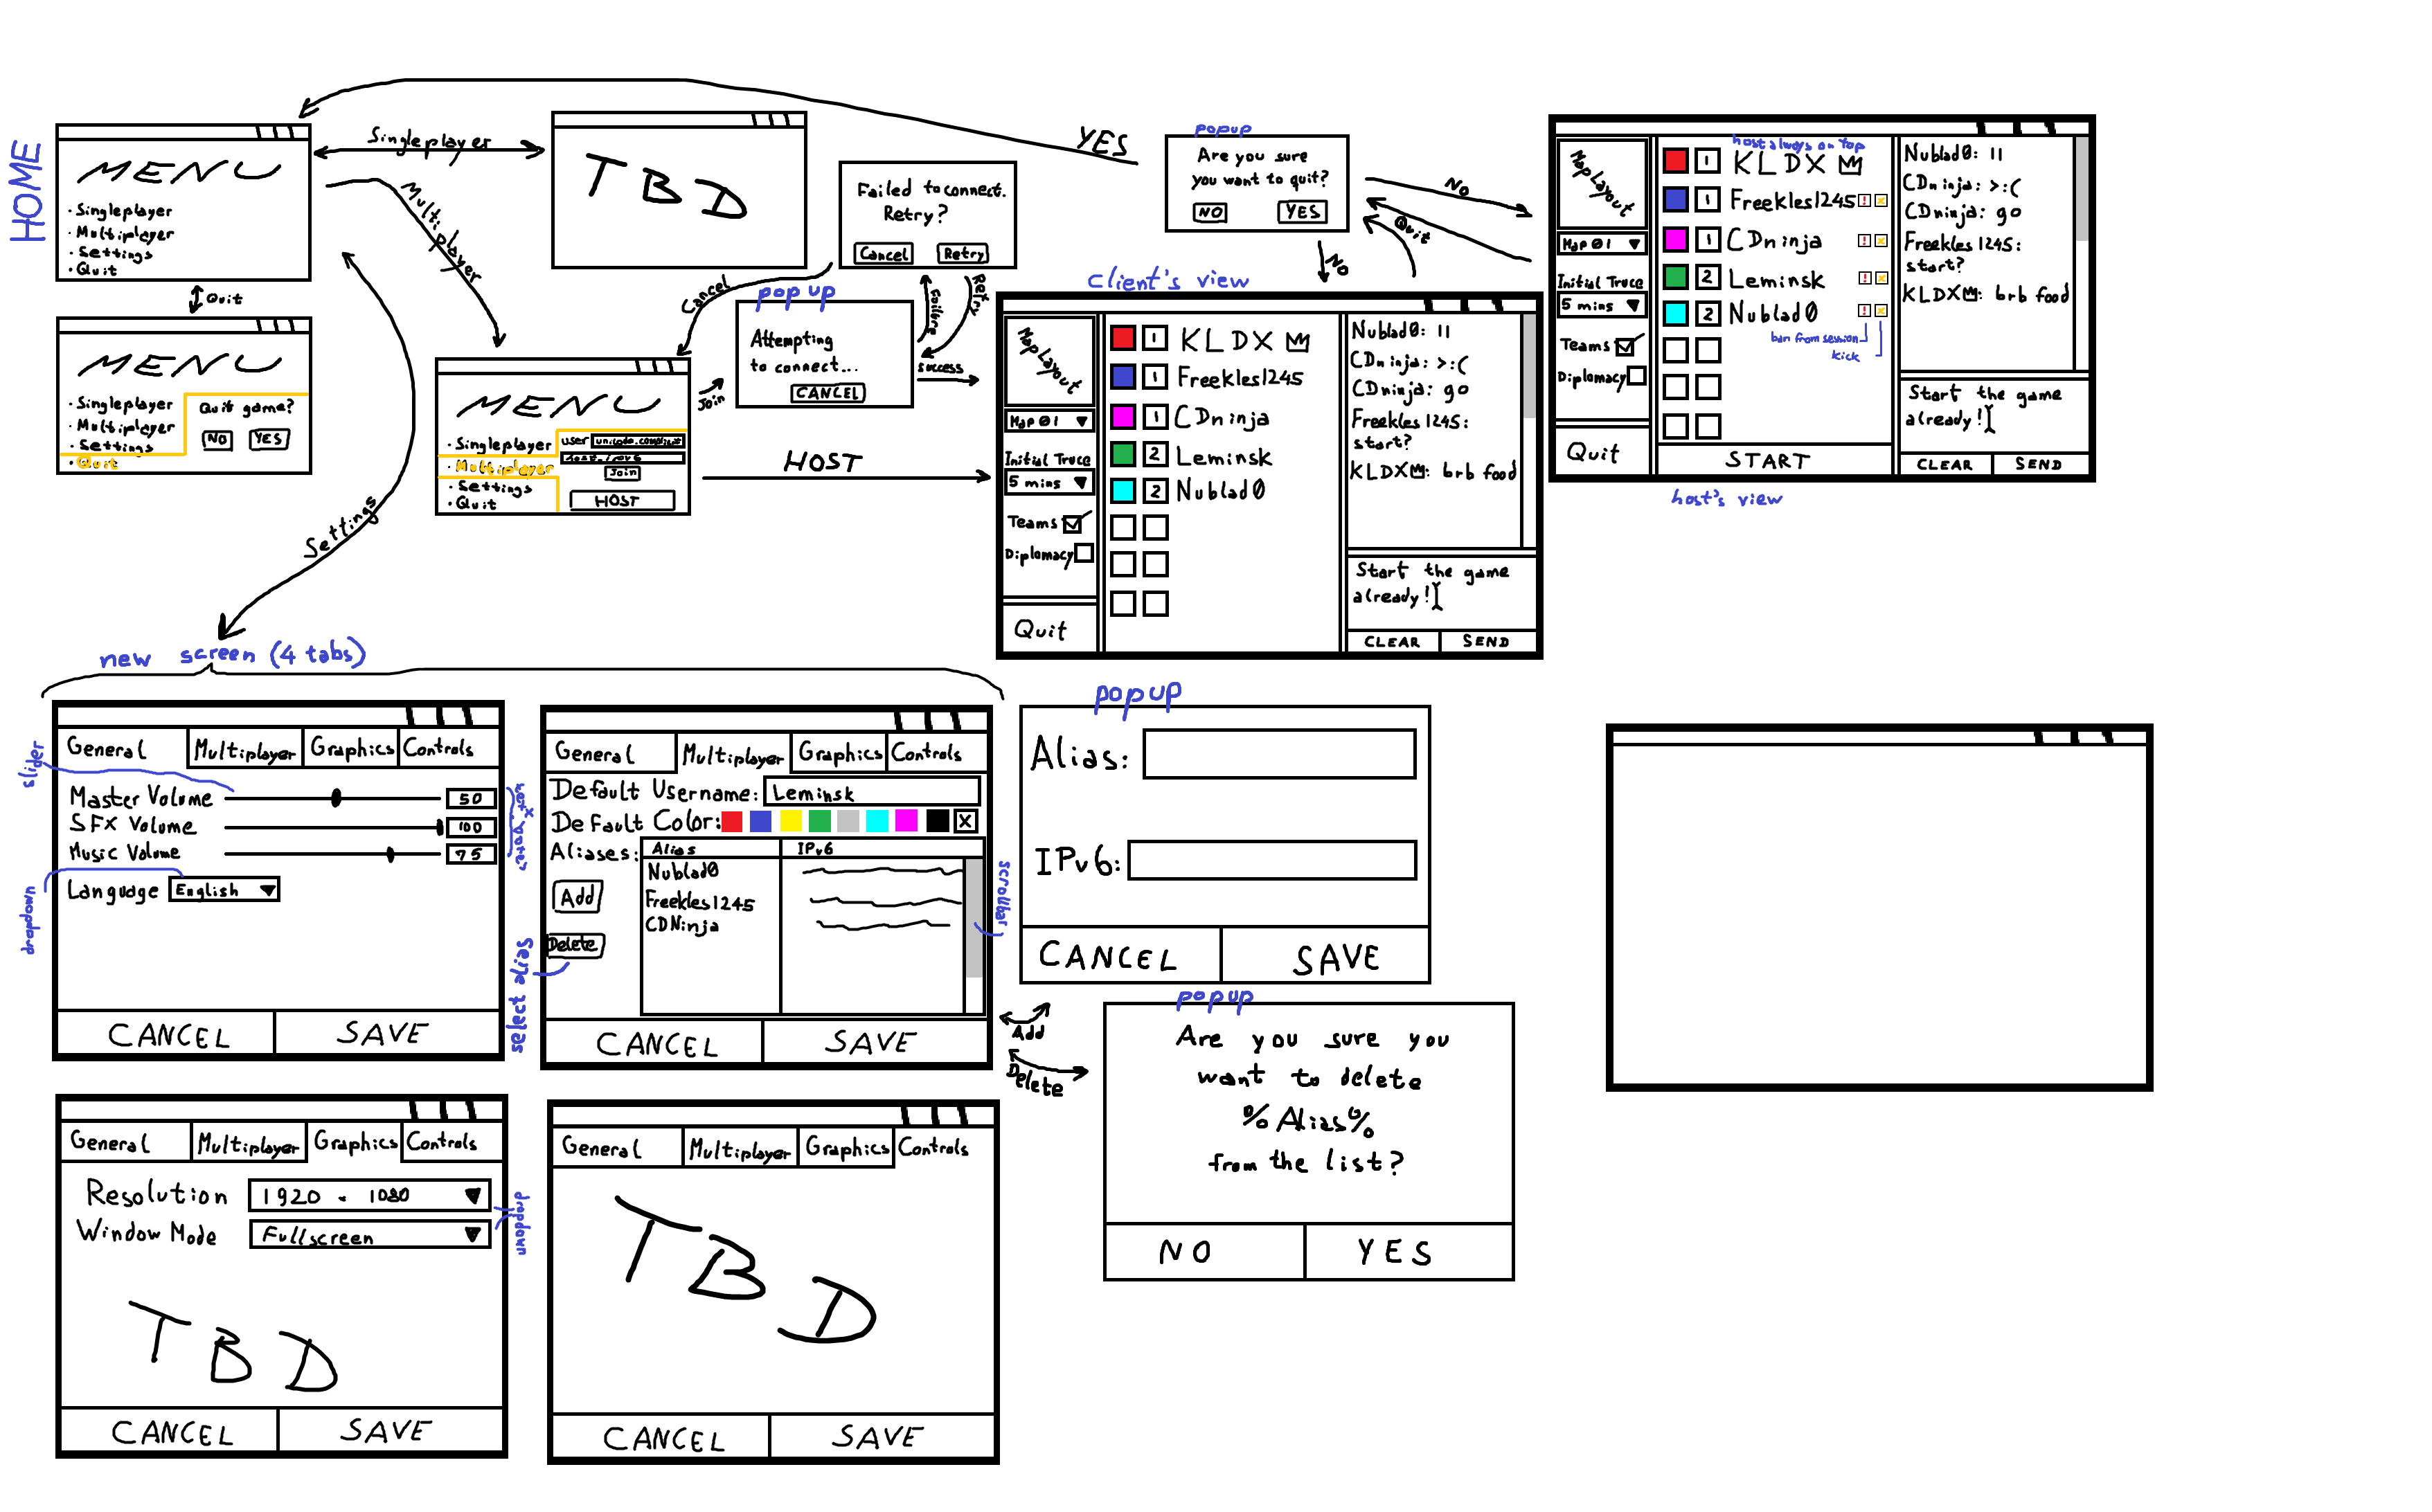 HOME
MENU
• Singleplayer
• Multiplayer
• Settings
• Quit
Quit
MENU
• Singleplayer
• Multiplayer
• Settings
• Quit
Quit game?
NO YES
Singleplayer
TBD
Multiplayer
Settings
MENU
• Singleplayer
• Multiplayer
• Settings
• Quit
user
Join
HOST
Join
Cancel
popup
Attempting
to connect...
CANCEL
Failed to connect.
Retry?
Cancel Retry
Failure
Retry
success
HOST
YES
popup
Are you sure
you want to quit?
NO YES
No
Quit
NO
client's view
Map Layout
Map 01
Initial Truce
5 mins
Teams
Diplomacy
Quit
1 KLDX
1 Freekles1245
1 CDninja
2 Leminsk
2 Nublad0
Nublad0: 11
CDninja: >:(
CDninja: go
Freekles1245:
start?
KLDX: brb food
Start the game
already!
CLEAR SEND
Map Layout
Map 01
Initial Truce
5 mins
Teams
Diplomacy
Quit
host always on top
1 KLDX
1 Freekles1245 ! x
1 CDninja ! x
2 Leminsk ! x
2 Nublad0 ! x
ban from session
kick
START
Nublad0: 11
CDninja: >:(
CDninja: go
Freekles1245:
start?
KLDX: brb food
Start the game
already!
CLEAR SEND
host's view
new screen (4 tabs)
General Multiplayer Graphics Controls
slider
Master Volume 50
SFX Volume 100
Music Volume 75
Language English
dropdown
CANCEL SAVE
General Multiplayer Graphics Controls
Default Username: Leminsk
Default Color: X
Aliases: Alias IPv6
Nublad0
Freekles1245
CDNinja
Add
Delete
select alias
scrollbar
CANCEL SAVE
Add
Delete
popup
Alias:
IPv6:
CANCEL SAVE
popup
Are you sure you
want to delete
%Alias%
from the list?
NO YES
General Multiplayer Graphics Controls
Resolution 1920 × 1080
Window Mode Fullscreen
dropdown
TBD
CANCEL SAVE
General Multiplayer Graphics Controls
TBD
CANCEL SAVE